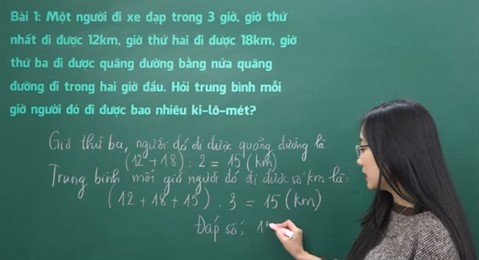 Bài 1: Một người đi xe đạp trong 3 giờ, giờ thứ
nhất đi được 12km, giờ thứ hai đi được 18km, giờ
thứ ba đi được quãng đường bằng nửa quãng
đường đi trong hai giờ đầu. Hỏi trung bình mỗi
giờ người đó đi được bao nhiêu ki-lô-mét?
Giờ thứ ba, người đó đi được quãng đường là
(12 + 18) : 2 = 15 (km)
Trung bình mỗi giờ người đó đi được số km là:
(12 + 18 + 15) : 3 = 15 (km)
Đáp số: